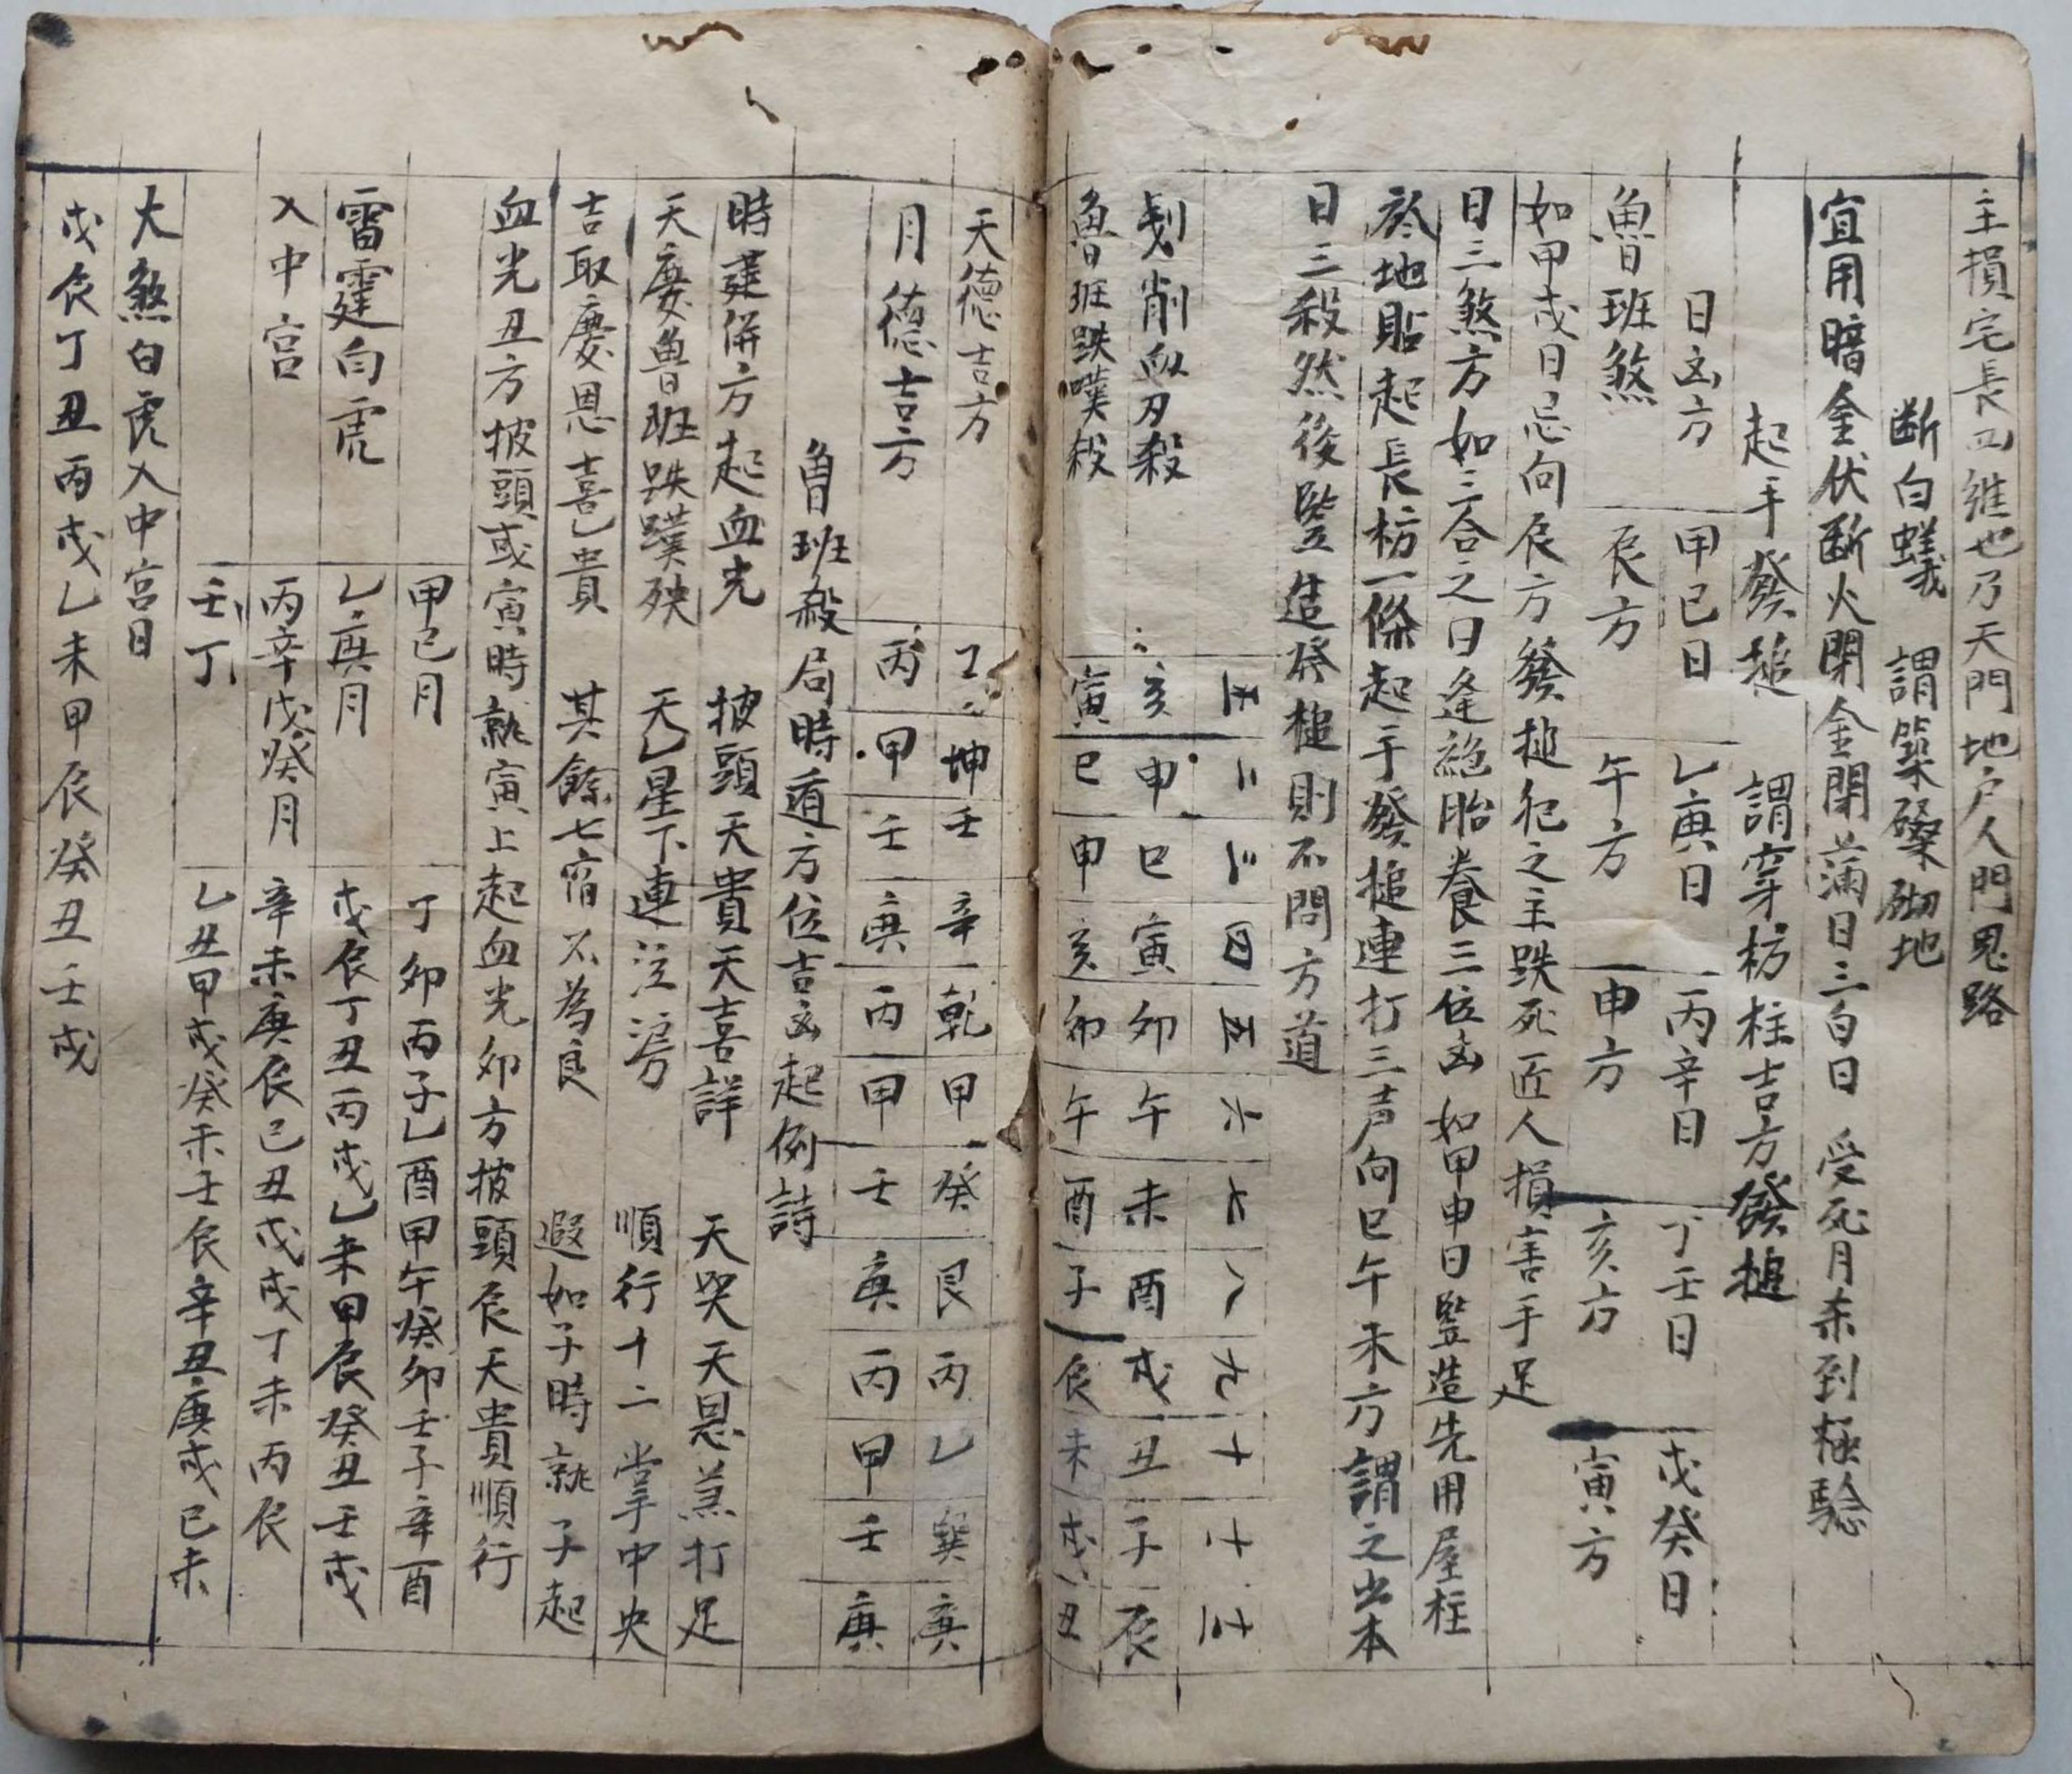 主損宅長四維也乃天門地户人門鬼路
断白蟻 謂築磉砌地
宜用暗金伏断火閉金閉滿日三白日 受死月杀到極驗
起手發搥 謂穿枋柱吉方發搥
日凶方 甲己日 乙庚日 丙辛日 丁壬日 戊癸日
魯班煞 辰方 午方 申方 亥方 寅方
如甲戌日忌向辰方發搥犯之主跌死匠人損害手足
日三煞方如三合之日逢絕胎養三位凶 如甲申日竪造先用屋柱
於地貼起長枋一條起手發搥連打三声向巳午未方謂之出本
日三殺然後竪造發槌則不問方道
正 二 三 四 五 六 七 八 九 十 十一 十二
剗削血刃殺 亥 申 巳 寅 卯 午 未 酉 戌 丑 子 辰
魯班跌噗殺 寅 巳 申 亥 卯 午 酉 子 辰 未 戌 丑
天德吉方 丁 坤 壬 辛 乾 甲 癸 艮 丙 乙 巽 庚
月德吉方 丙 甲 壬 庚 丙 甲 壬 庚 丙 甲 壬 庚
魯班殺局時遁方位吉凶起例詩
時建併方起血光 披頭天貴天喜詳 天哭天恩羔打足
天慶魯班跌蹼殃 天乙星下連注滂 順行十二掌中央
吉取慶恩喜乙貴 其餘七宿不為良 遐如子時就子起
血光丑方披頭或寅時就寅上起血光卯方披頭辰天貴順行
甲己月 丁卯丙子乙酉甲午癸卯壬子辛酉
雷霆白虎 乙庚月 戊辰丁丑丙戌乙未甲辰癸丑壬戌
入中宮 丙辛戊癸月 辛未庚辰己丑戊戌丁未丙辰
壬丁 乙丑甲戌癸未壬辰辛丑庚戌己未
大煞白虎入中宮日
戊辰丁丑丙戌乙未甲辰癸丑壬戌